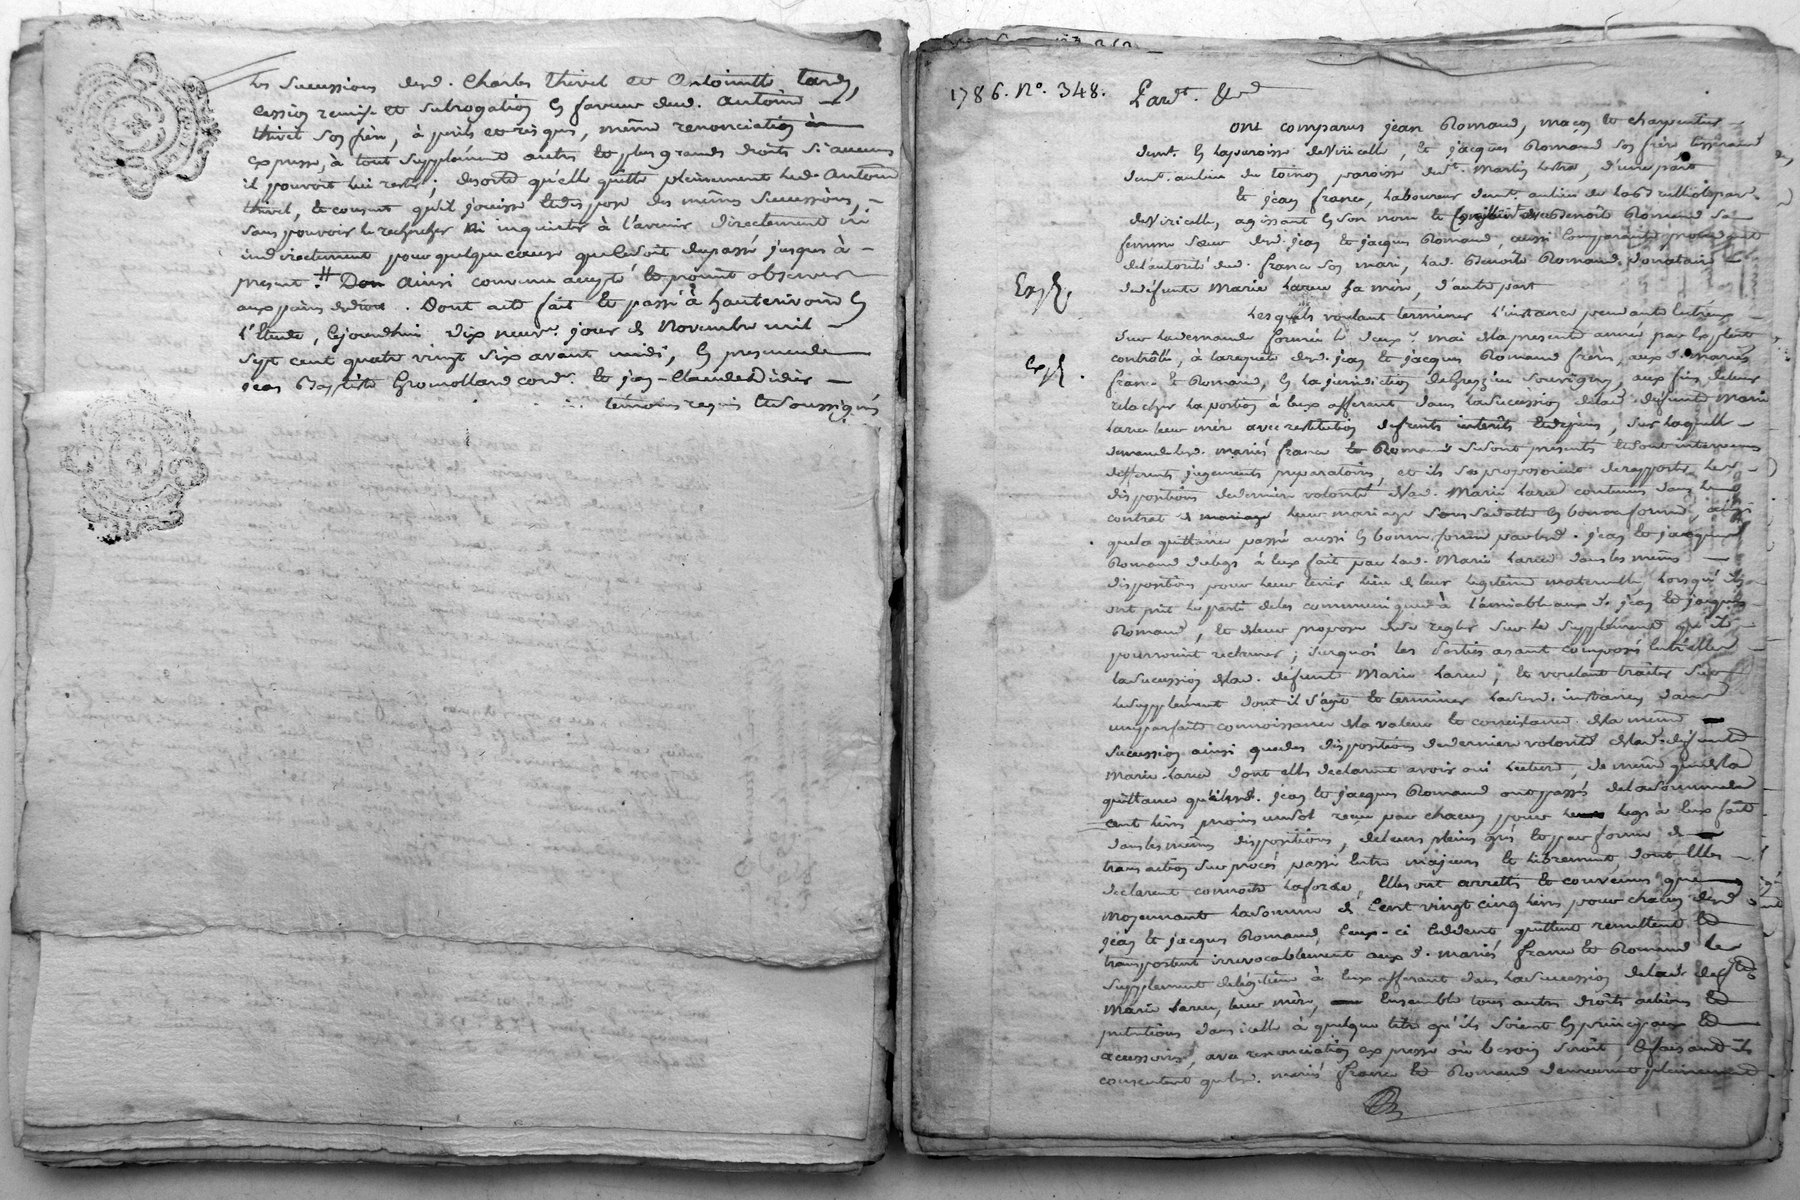 les successions desd. Charles thivel et Antoinette tardy,
cession remise et subrogation en faveur dud. antoine
thivel son frère, à perils et risques, même renonciation
expresse, à tout supplément autres et plus grands droits si aucuns
il pouvoit lui rester; desorte qu'elle quitte pleinement led. Antoine
thivel, et consent qu'il jouisse et dispose des mêmes successions,
sans pouvoir le rechercher ni inquieter à l'avenir directement ni
indirectement pour quelque cause que ce soit du passé jusques à
present. ainsi convenu accepté et promit observer
aux peines de droit. Dont acte fait et passé à hauterivoire en
l'Etude, cejourdhui dix neuv.e jour de Novembre mil
sept cent quatre vingt six avant midi, en presence de
jean Baptiste Gromolland cord.r et jean-Claude Didier
témoins requis et soussignés
1786. No. 348. Pard.t &
ont comparus jean Romand, maçon et charpentier
dem.t en la paroisse de Viricelle, et jacques Romand son frère tisserand
dem.t au lieu du toinon, paroisse de St. Martin lestra, d'une part
et jean france, laboureur dem.t au lieu de
de Viricelle, agissant en son nom et Benoite Romand sa
femme sœur desd. jean et jacques Romand, aussi comparante procedante
de l'autorité dud. france son mari, lad. Benoite Romand donataire
de defunte Marie larue sa mère, d'autre part
Exp.
Lesquels voulant terminer l'instance pendante entr'eux
sur la demande formée le deux mai de la presente année par exploit
Exp.
contrôlé, à la requete desd. jean et jacques Romand frères, aux d. mariés
france et Romand, en la jurisdiction de Grezieu Souvigny, aux fins de leur
relacher la portion à eux afferant dans la succession de lad. defunte Marie
larue leur mère avec restitution de fruits interets et depens, sur laquelle
demande lesd. mariés france et Romand se sont presentés et sont intervenus
differents jugements preparatoires, et ils se proposoient de rapporter les
dispositions de derniere volonté de lad. Marie larue contenues dans le
contrat de mariage leur mariage sous sa datte en bonne forme, ainsi
que la quittance passée aussi en bonne forme par lesd. jean et jacques
Romand du legs à eux fait par lad. Marie larue dans les mêmes
dispositions pour leur tenir lieu de leur legitime maternelle lorsqu'ils
ont prit le parti de les communiquer à l'amiable aux d. jean et jacques
Romand, et de leur proposer de se regler sur le supplément qu'ils
pourroient reclamer; surquoi les parties ayant composés entr'elles
la succession de lad. defunte Marie larue, et voulant traiter sur
le supplément dont il s'agit et terminer lad. instance dans
une parfaite connoissance de la valeur et consistance de la même
succession ainsi que des dispositions de derniere volonté de lad. defunte
Marie larue dont elles declarent avoir oui lecture, de même que de la
quittance qu'ilsd. jean et jacques Romand ont passés de la somme de
cent livres moins un sol recue par chacun pour le legs à eux fait
dans les mêmes dispositions, de leurs pleins grés et par forme de
transaction sur procés passé entre majeurs et librement dont elles
declarent connoitre la force, Elles ont arretés et convenus que
moyennant la somme de cent vingt cinq livres pour chacun desd.
jean et jacques Romand, ceux-ci cedent quittent remettent et
transportent irrevocablement aux d. mariés france et Romand le
supplément de legitime à eux afferant dans la succession de lad. defunte
Marie larue, leur mère, Ensemble tous autres droits actions et
petentions dans icelle à quelque titre qu'ils soient en principaux et
accessoires, avec renonciation expresse où besoin seroit, et faisant ils
consentent que lesd. mariés france et Romand demeurent pleinement